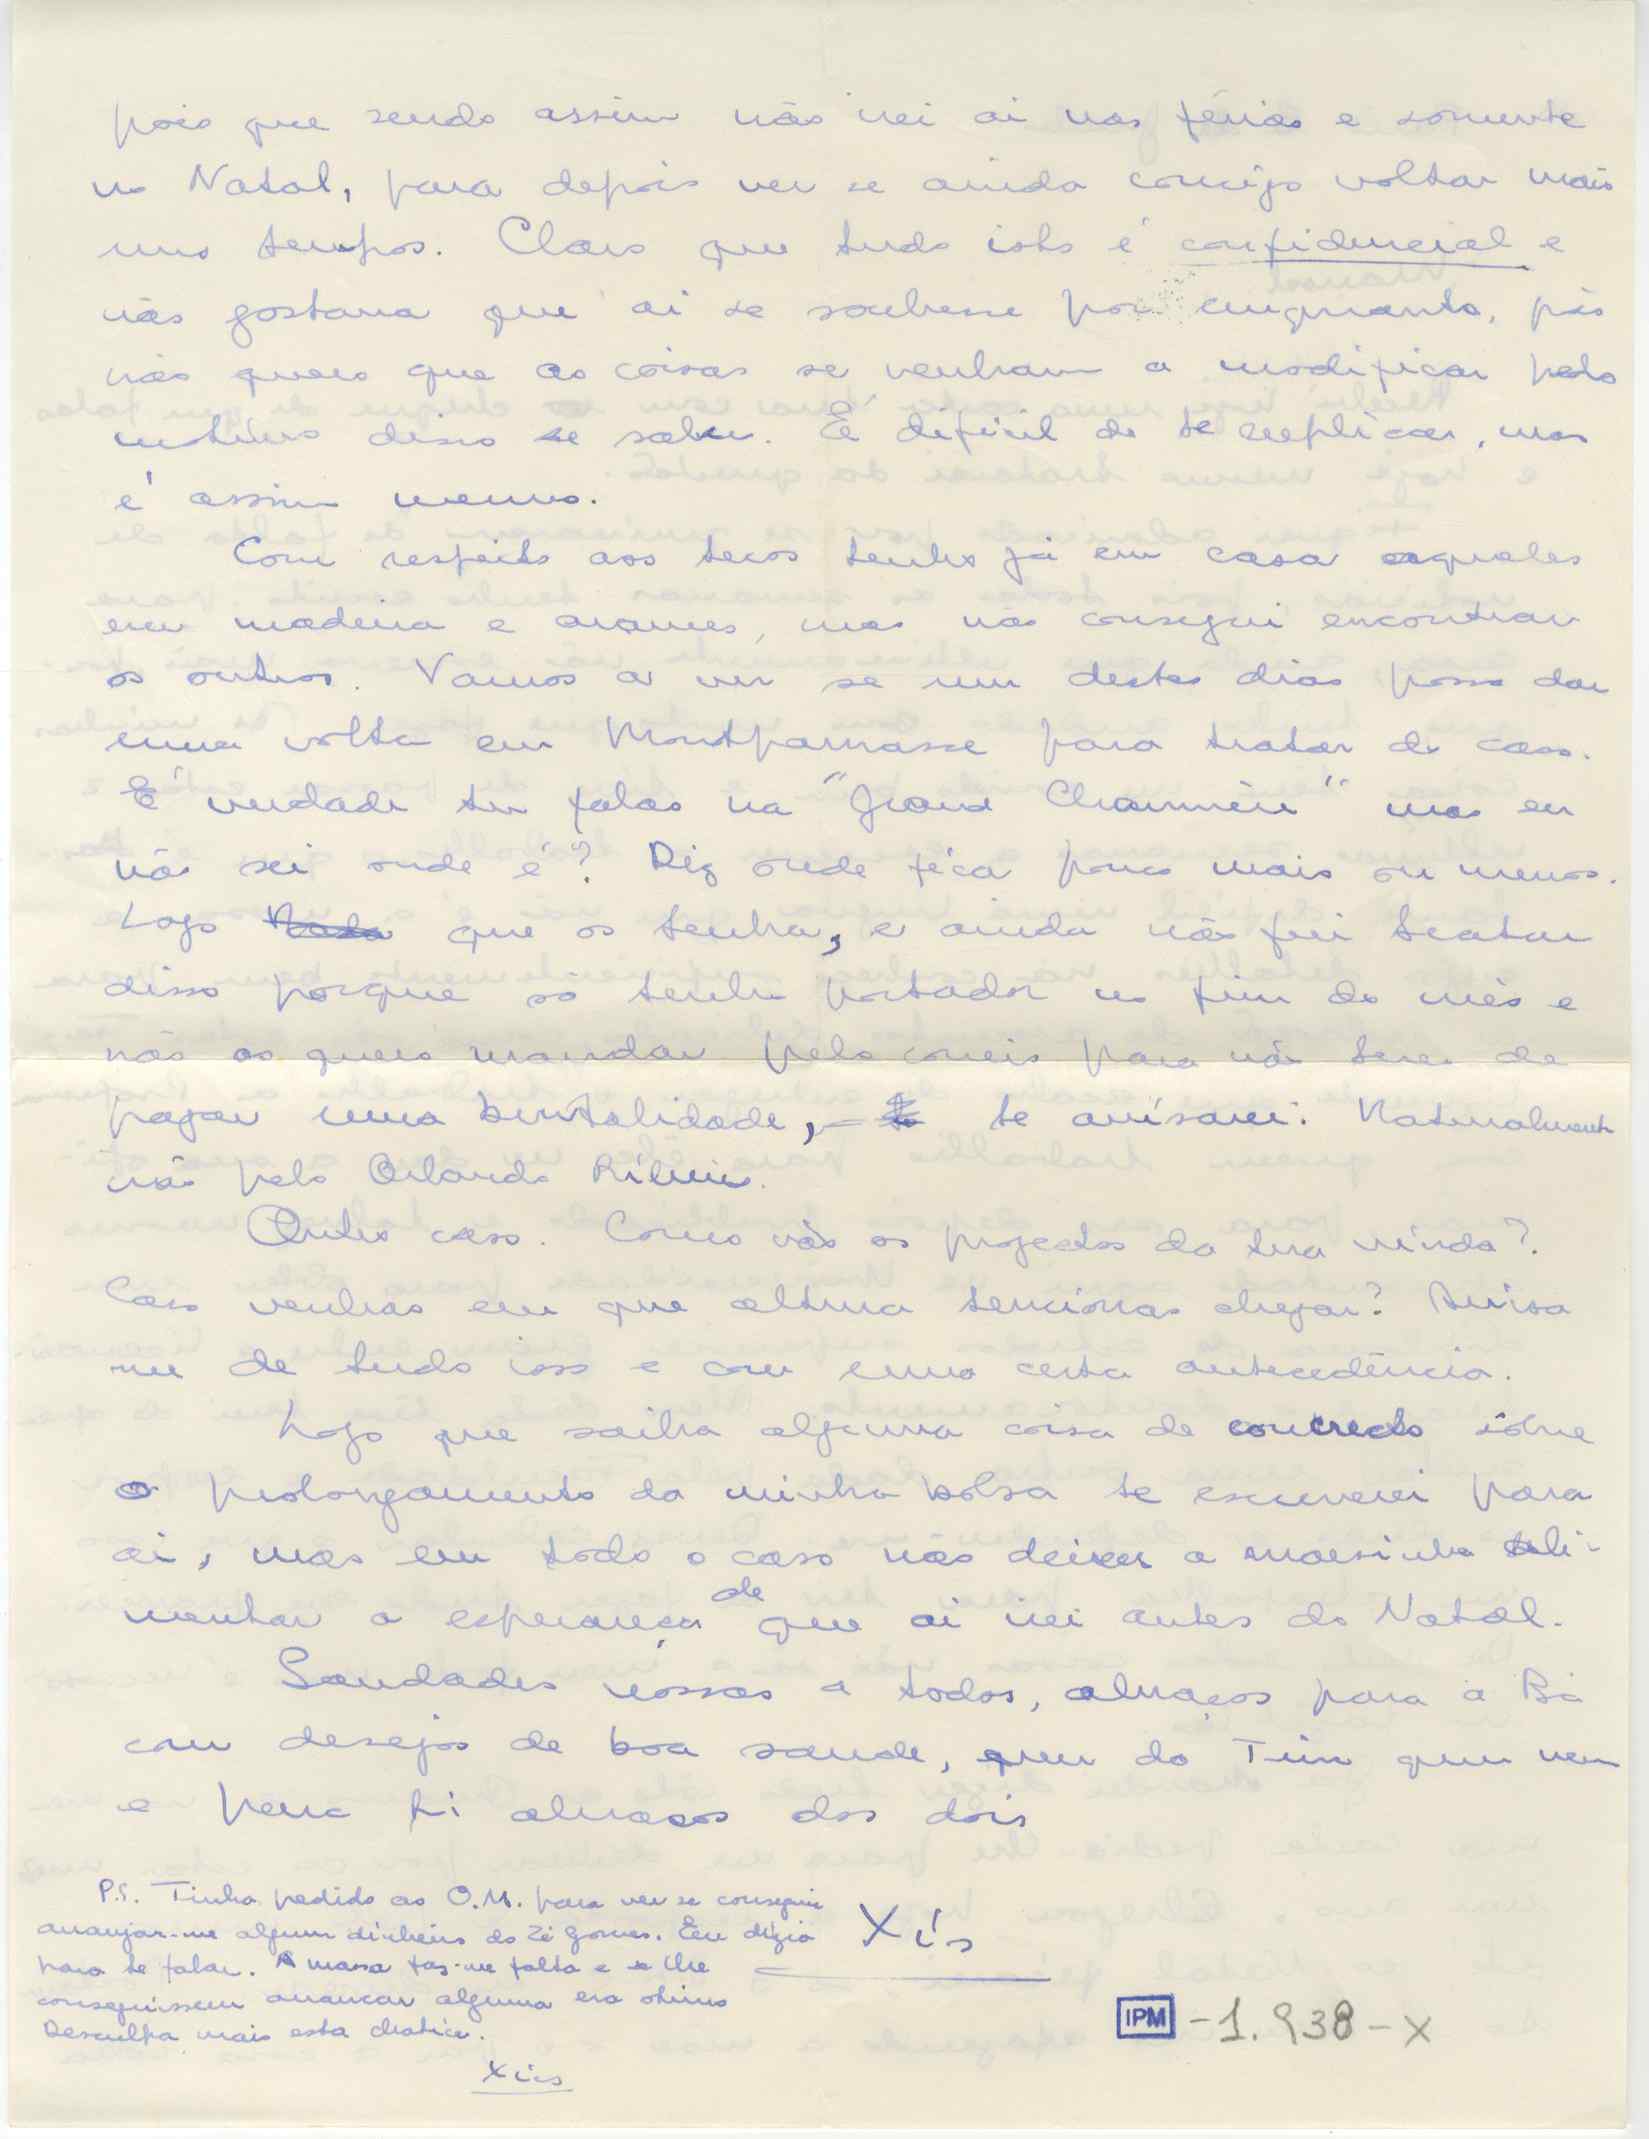 pois que sendo assim não irei aí nas férias e somente
no Natal, para depois ver se ainda consigo voltar mais
uns tempos. Claro que tudo isto é confidencial e
não gostava que aí se soubesse por enquanto, pois
não quero que as coisas se venham a modificar pelo
motivo disso se saber. É difícil de te explicar, mas
é assim mesmo.
Com respeito aos tecos tenho já em casa aqueles
em madeira e arames, mas não consegui encontrar
os outros. Vamos a ver se um destes dias posso dar
uma volta em Montparnasse para tratar do caso.
É verdade tu falas na "Grand Chaumière" mas eu
não sei onde é? Diz onde fica pouco mais ou menos.
Logo que os tenha, e ainda não fui tratar
disso porque só tenho portador no fim do mês e
não os quero mandar pelo correio para não teres de
pagar uma brutalidade, – te avisarei. Naturalmente
não pelo Orlando Ribeiro.
Outro caso. Como vão os projectos da tua vinda?
Caso venhas em que altura tencionas chegar? Avisa
-me de tudo isso e com uma certa antecedência.
Logo que saiba alguma coisa de concreto sôbre
o prolongamento da minha bolsa te escreverei para
aí, mas em todo o caso vae deixar a mãesinha ali-
mentar a esperança de que aí irei antes do Natal.
Saudades nossas a todos, abraços para a Bá
com desejos de boa saude, quer do Tim quer meu
e para ti abraços dos dois
Xis
P.S. Tinha pedido ao O.M. para ver se conseguia
arranjar-me algum dinheiro do Zé Gomes. Eu dizia
para te falar. A massa faz-me falta e se lhe
conseguissem arrancar alguma era otimo
Desculpa mais esta chatice.
Xis
IPM - 1.938 - X